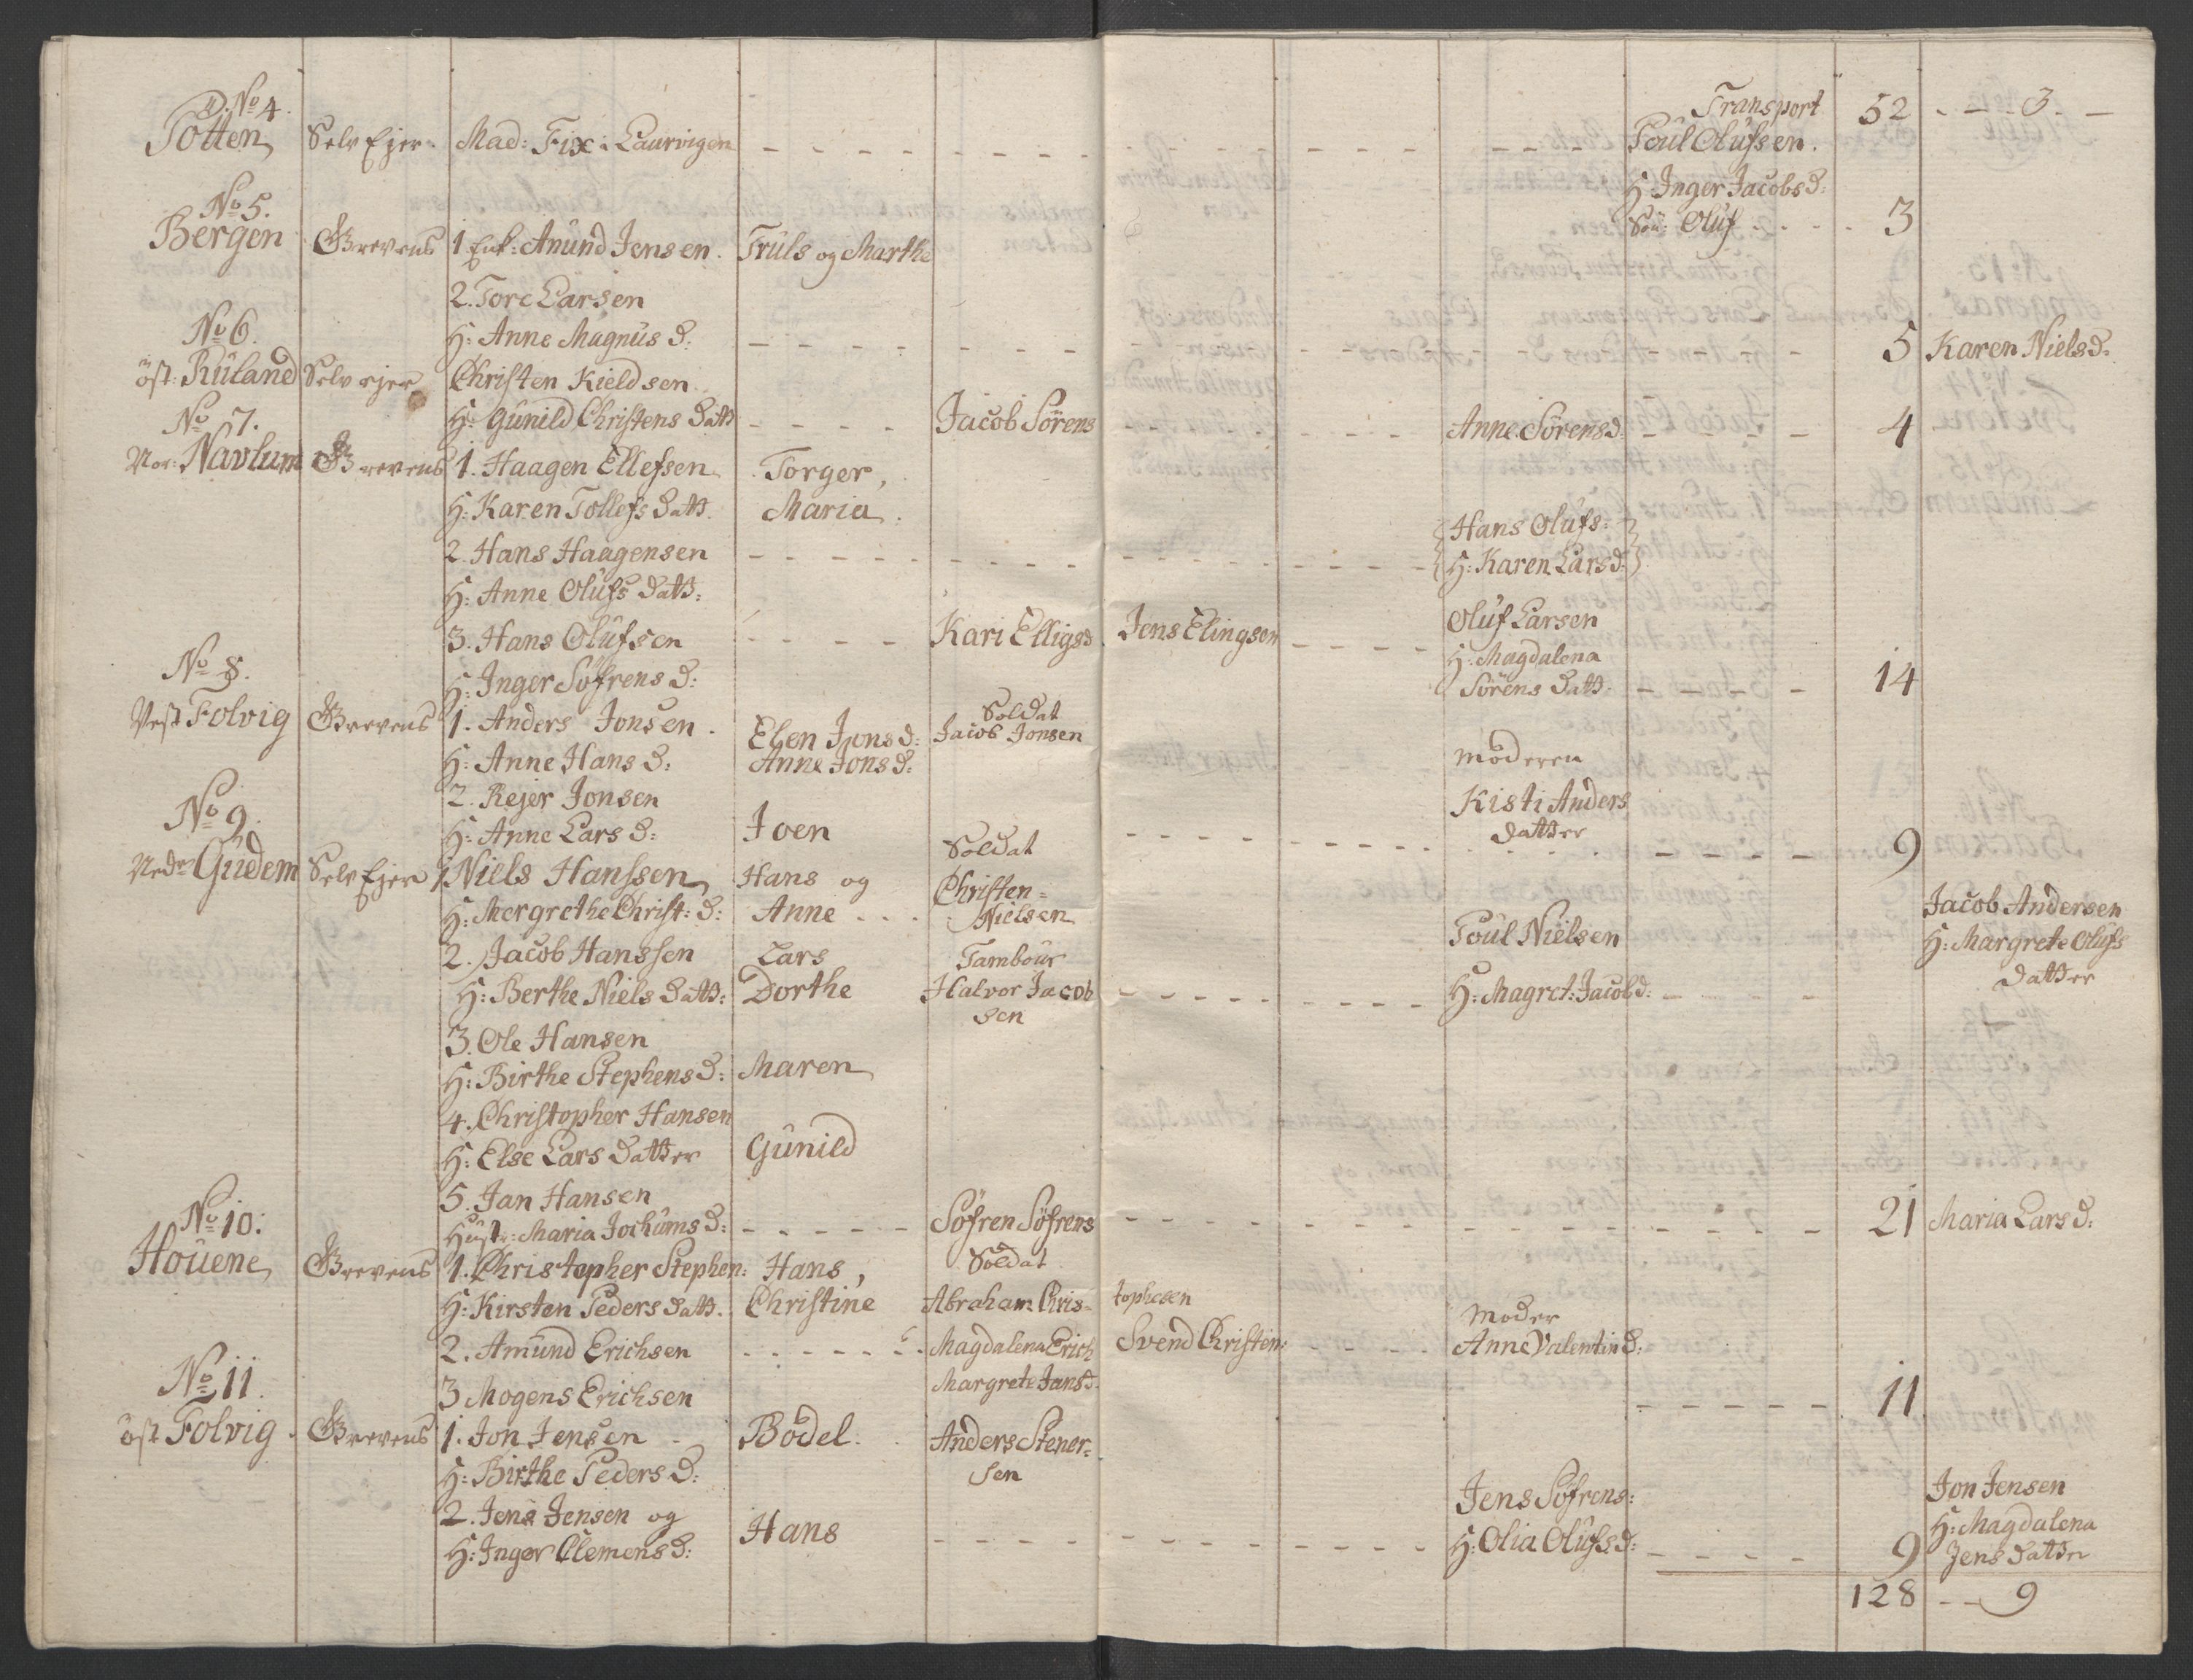 No 4.
Tötten Selv Ejer. Mad: Fix i Laurvigen Transport 52 - - 3. -
Poul Olufsen.
H: Inger Jacobs D:
Sön: Oluf 3
No 5.
Bergen Grevens 1 Enk: Anund Jensen. Truls og Marthe
2. Tore Larsen
H: Anne Magnus D: 5 Karen Niels D:
No 6.
öst: Ruland Selv ejer Christen Kieldsen
H: Gunild Christens Datt Jacob Sörens Anne Sörens D: 4
No 7.
Nor: Navlum Grevens 1. Haagen Ellefsen Torger,
H: Karen Tollefs Datt. Maria.
2. Hans Haagensen Hans Olufs:
H: Anne Olufs Datt: H: Karen Lars D:
3. Hans Olufsen Kari Elligs D. Jens Elingsen Oluf Larsen
H: Inger Söfrens D: H: Magdalena
Sörens Datt. 14
No 8.
Vest Folvig Grevens 1. Anders Jonsen. Elen Jons D: Soldat
Jacob Jonsen
H: Anne Hans D: Anne Jons D: Moderen
2. Rejer Jonsen Kisti Anders
H: Anne Lars D: Joen Datter 9
No 9.
Nedr Gudem Selv Ejer 1 Niels Hanssen Hans og Soldat
Christen=
H: Mergrethe Christ: D: Anne Nielsen
2. Jacob Hanssen Lars Tambour Poul Nielsen Jacob Andersen
H: Berthe Niels Datt: Dorthe Halvor Jacob H: Magret: Jacob D: H: Margrete Olufs
sen Datter
3. Ole Hansen
H: Birthe Stephens D: Maren
4. Christopher Hansen
H: Else Lars Datter Gunild
5. Jan Hansen
Hust: Maria Jochums D: Söfren Söfrens 21 Maria Lars D:
No 10.
Houene Grevens 1. Christopher Stephen: Hans, Soldat
H: Kirsten Peders Datt. Christine Abraham Chris= tophesen Moder
2. Amund Erichsen Magdalena Erich Svend Christen: Anne Valentin D:
3 Mogens Erichsen Margrete Jans D. 11
No 11.
öst Folvig Grevens 1. Jon Jensen Bodel. Anders Stener=
sen
H: Birthe Peders D:
2. Jens Jensen og Hans Jens Söfrens: Jon Jensen
H: Inger Clemens D: H: Olia Olufs D: 9 H: Magdalena
Jens Datter
128 - - 9